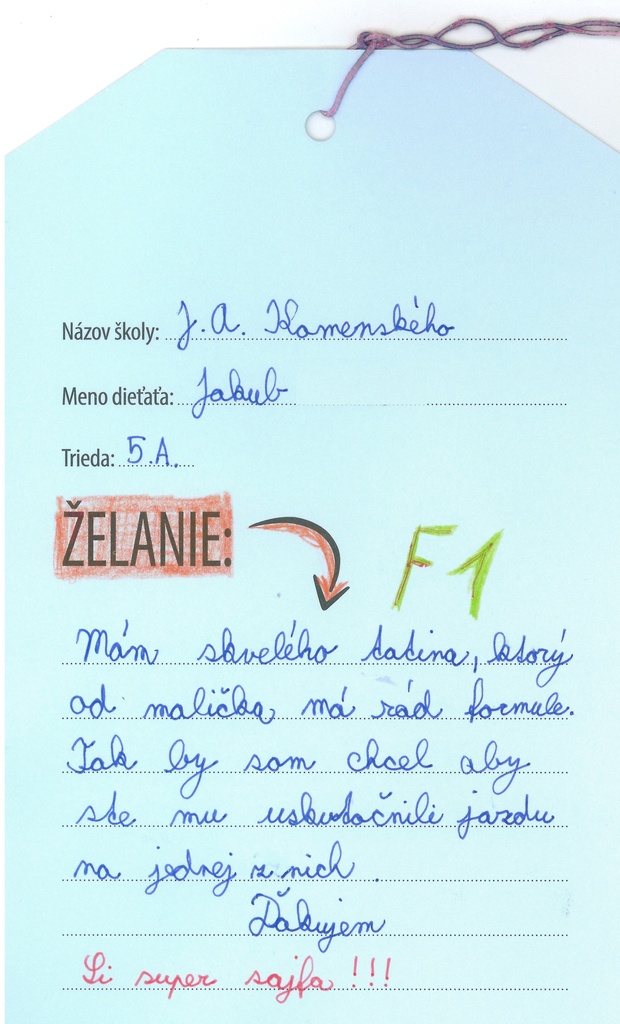 Názov školy: J. A. Komenského
Meno dieťaťa: Jakub
Trieda: 5.A.
ŽELANIE:
F1
Mám skvelého tatina, ktorý
od malička má rád formule.
Tak by som chcel aby
ste mu uskutočnili jazdu
na jednej z nich.
Ďakujem
Si super sajfa !!!